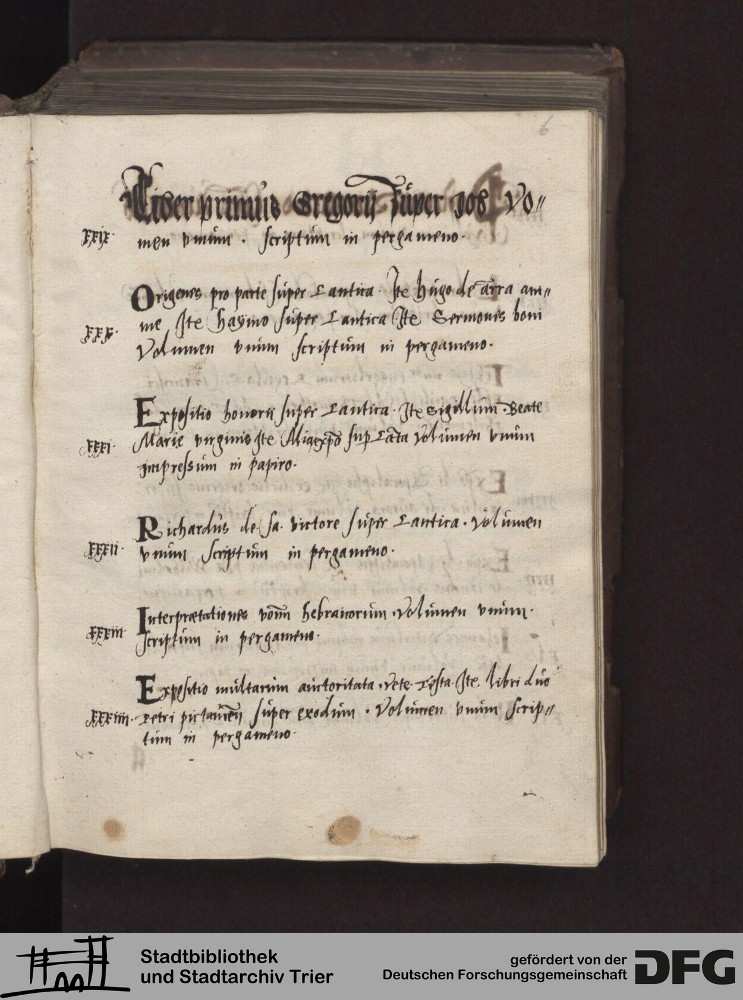 6
Liber primus Gregorij super Job Vo=
XXIX men vnum . scriptum in pergameno.
Origenes pro parte super Cantica. Ite Hugo de arra ani=
XXX. me Ite haÿmo super Cantica Ite Sermones boni
Volumen vnum scriptum in pergameno.
Expositio honorii super Cantica. Ite Sigillum Beate
XXXI. Marie virginis Ite Alia sup Volumen vnum
impressum in papiro.
Richardus de sa. victore super Cantica. Volumen
XXXII. vnum scriptum in pergameno.
Interpretationes hebraicorum. Volumen vnum.
XXXIII scriptum in pergameno.
Expositio multarum auctoritata. Vete. Testa. Ite. libri duo
XXXIIII. Petri super exodum. Volumen vnum scrip=
tum in pergameno.
Stadtbibliothek
und Stadtarchiv Trier
gefördert von der
Deutschen Forschungsgemeinschaft
DFG